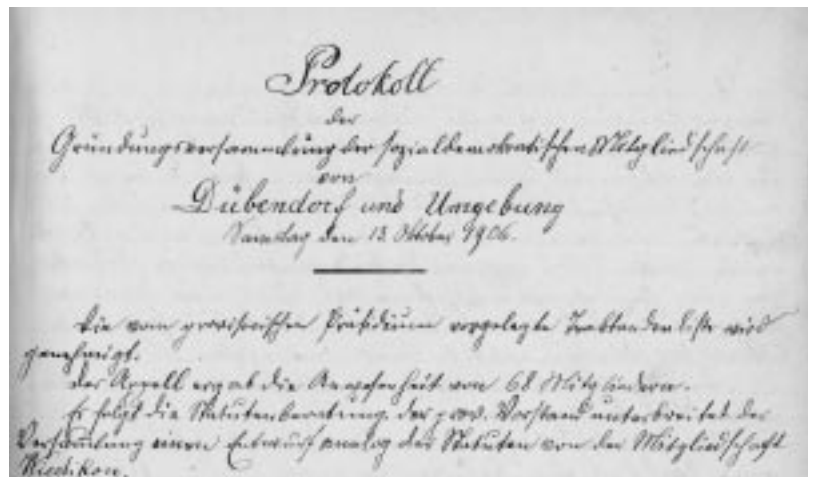 Protokoll
der
Gründungsversammlung der sozialdemokratischen Mitgliedschaft
von
Dübendorf und Umgebung
Samstag den 13. Oktober 1906.
Die vom provisorischen Präsidium vorgelegte Traktandenliste wird
genehmigt.
Der Appell ergab die Anwesenheit von 68 Mitgliedern.
Es folgt die Statutenberatung. Der prov. Vorstand unterbreitet der
Versammlung einen Entwurf analog der Statuten von der Mitgliedschaft
Riedikon.